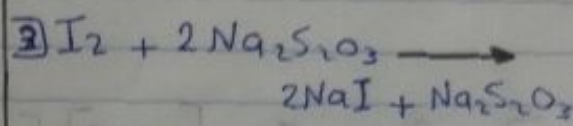 2 I2 + 2Na2S2O3 →
2NaI + Na2S2O3